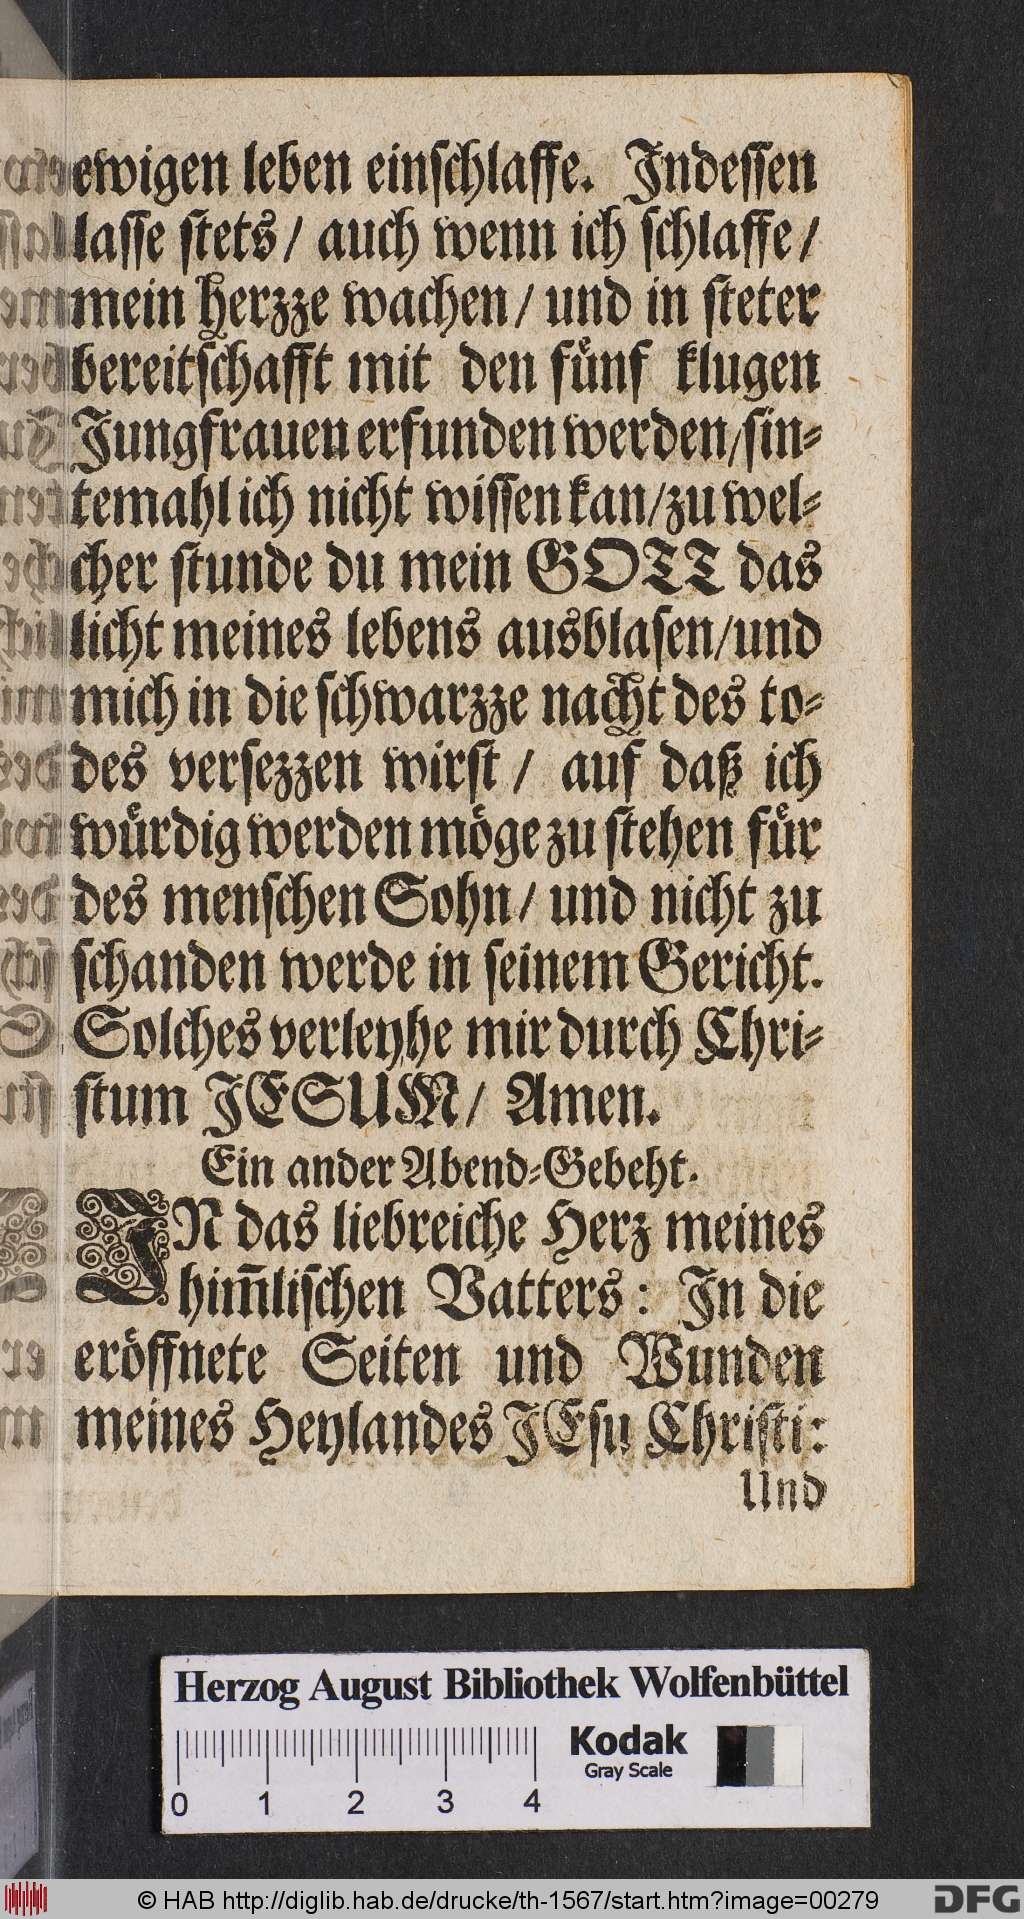 ewigen leben einſchlaffe. Indeſſen
laſſe ſtets/ auch wenn ich ſchlaffe/
mein herzze wachen/ und in ſteter
bereitſchafft mit den fuͤnf klugen
Jungfrauen erfunden werden/ſin⸗
temahl ich nicht wiſſen kan/zu wel⸗
cher ſtunde du mein GOTT das
licht meines lebens ausblaſen/und
mich in die ſchwarzze nacht des to⸗
des verſezzen wirſt/ auf daß ich
wuͤrdig werden moͤge zu ſtehen fuͤr
des menſchen Sohn/ und nicht zu
ſchanden werde in ſeinem Gericht.
Solches verleyhe mir durch Chri⸗
ſtum JESUM/ Amen.
Ein ander Abend⸗Gebeht.
IN das liebreiche Herz meines
him̃liſchen Vatters: In die
eroͤffnete Seiten und Wunden
meines Heylandes JEſu Chriſti:
Und
Herzog August Bibliothek Wolfenbüttel
Kodak
Gray Scale
0 1 2 3 4
© HAB http://diglib.hab.de/drucke/th-1567/start.htm?image=00279
DFG